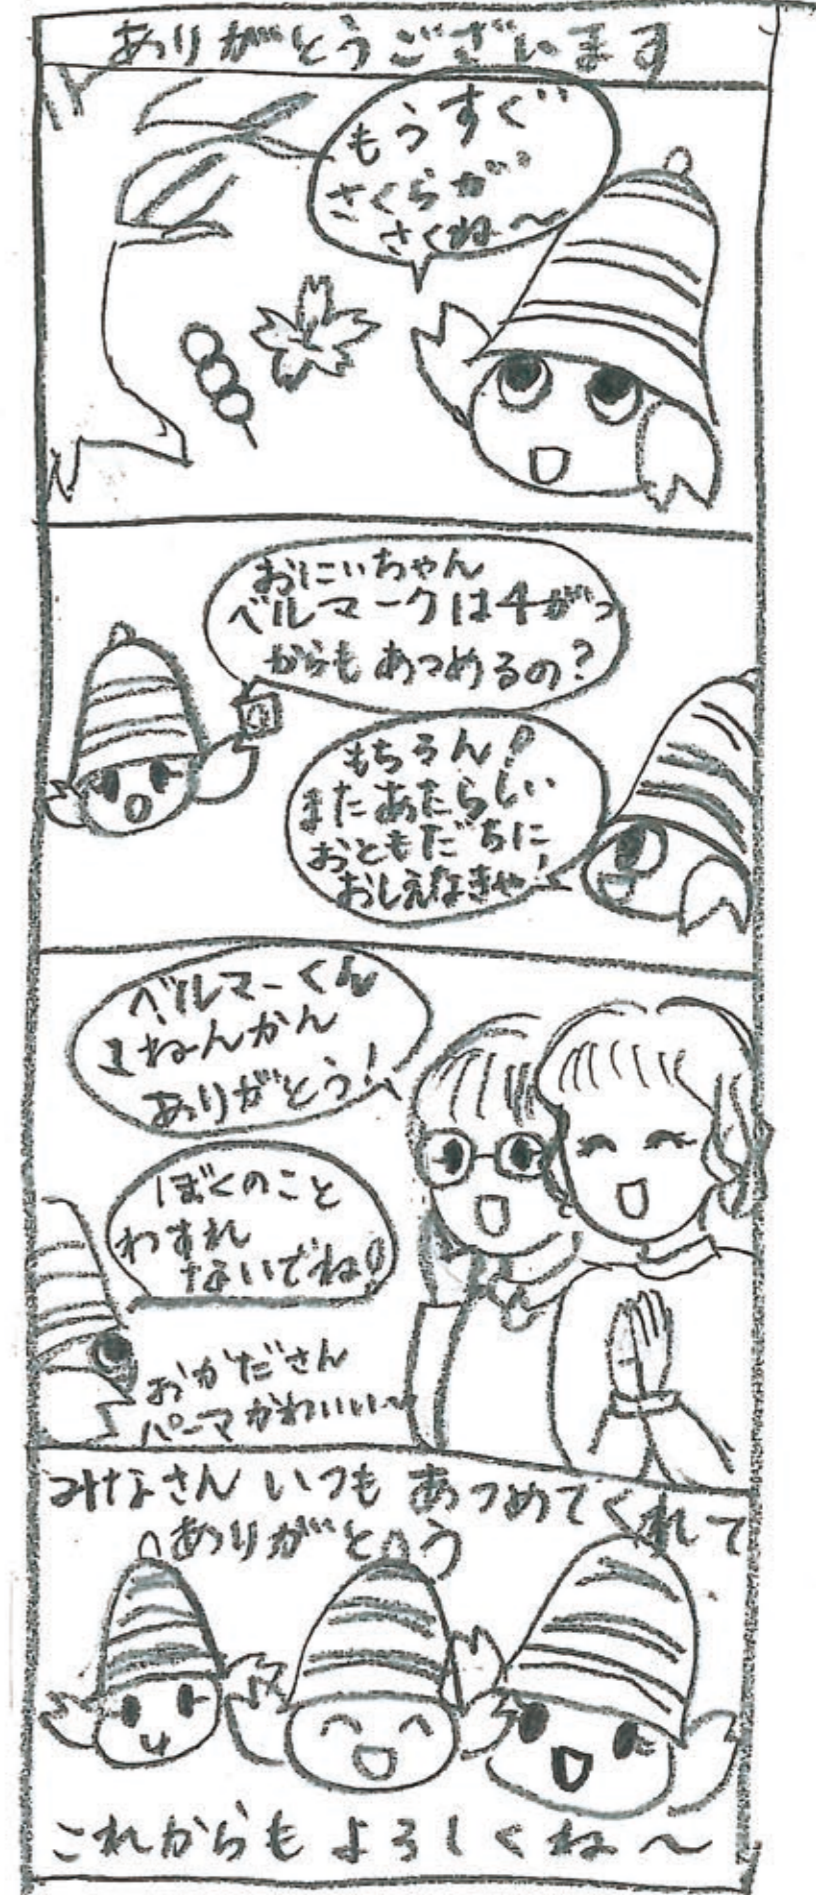 ありがとうございます
もうすぐ
さくらが
さくね〜
おにいちゃん
ベルマークは4がつ
からもあつめるの?
もちろん!
またあたらしい
おともだちに
おしえなきゃ!
ベルマーくん
1ねんかん
ありがとう!
ぼくのこと
わすれ
ないでね!
おかださん
パーマかわいい〜
みなさん いつも あつめてくれて
ありがとう
これからもよろしくね〜